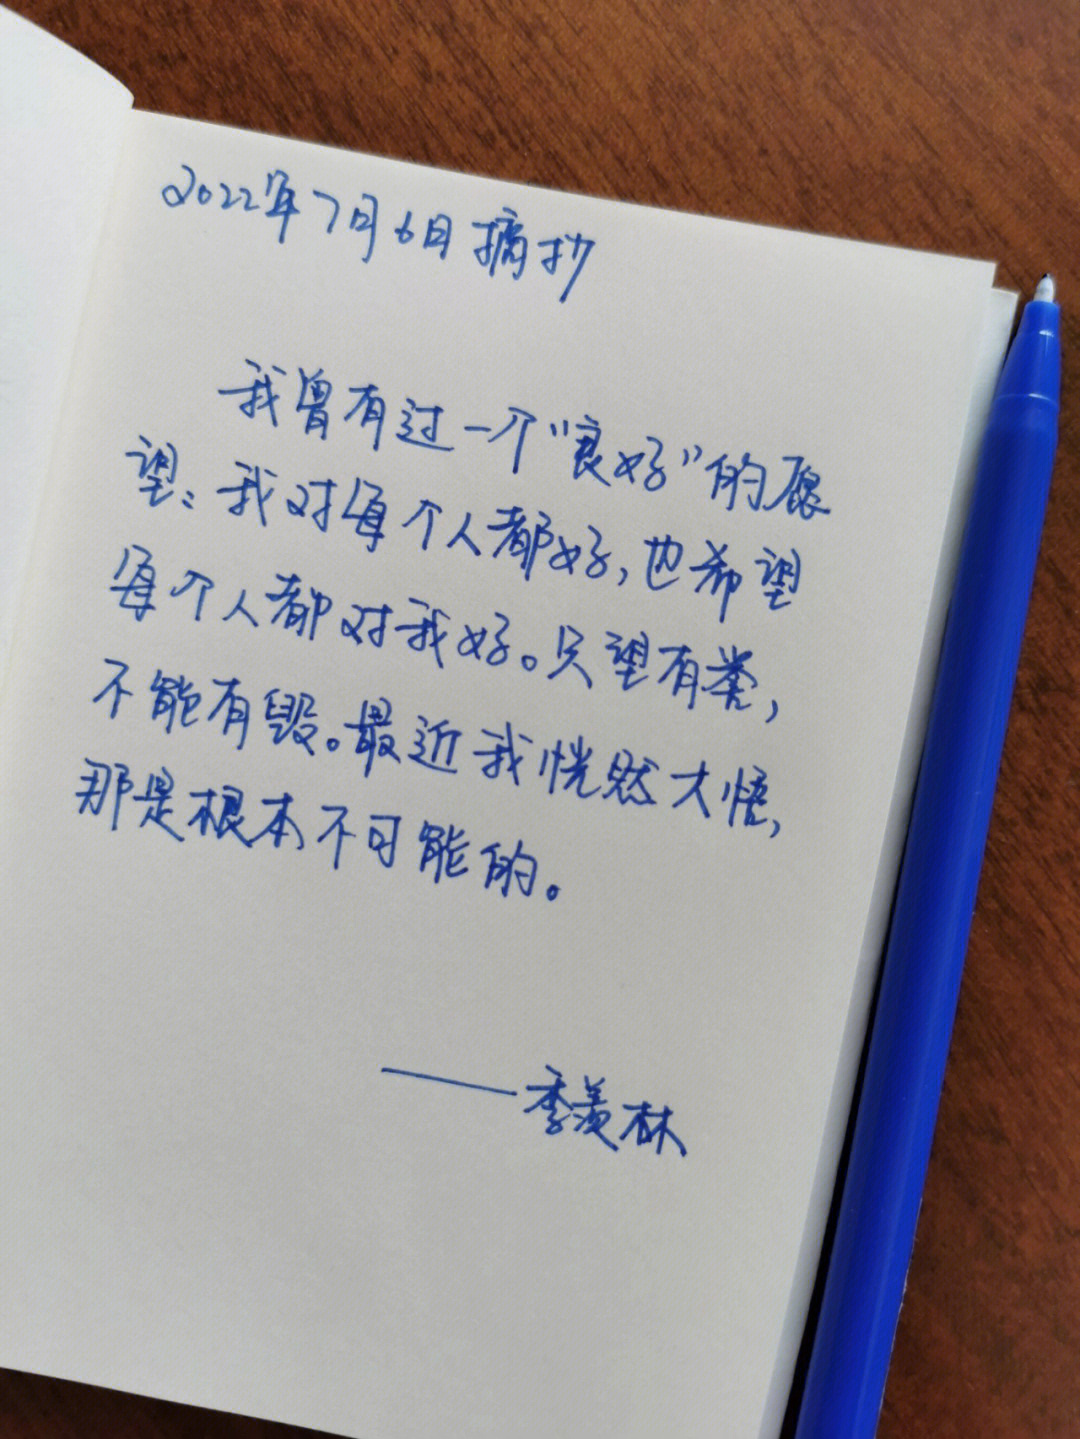 2022年7月6日摘抄
我曾有过一个“良好”的愿
望：我对每个人都好，也希望
每个人都对我好。只望有誉，
不能有毁。最近我恍然大悟，
那是根本不可能的。
——季羡林